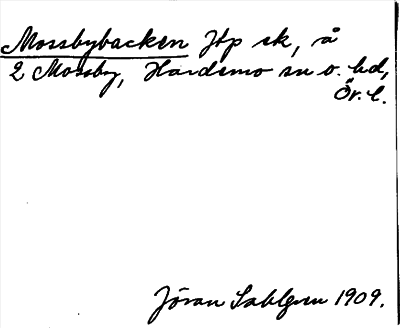 Mossbybacken Jtp sk, å
2 Mossby, Hardemo sn o. hd,
Ör. l.
Jöran Sahlgren 1909.